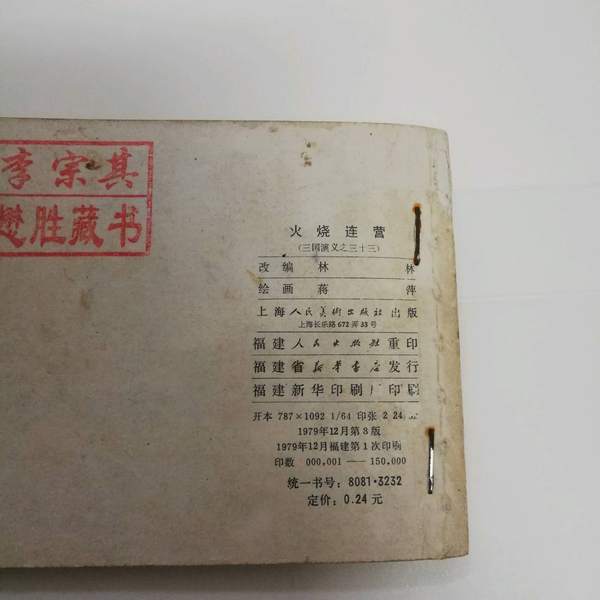 李宗其
樊胜藏书
火烧连营
(三国演义之三十三)
改编 林 林
绘画 蒋 萍
上海人民美术出版社出版
上海长乐路672弄33号
福建人民出版社重印
福建省新华书店发行
福建新华印刷厂印刷
开本 787×1092 1/64 印张 2 24
1979年12月第3版
1979年12月福建第1次印刷
印数 000,001——150,000
统一书号: 8081·3232
定价: 0.24 元